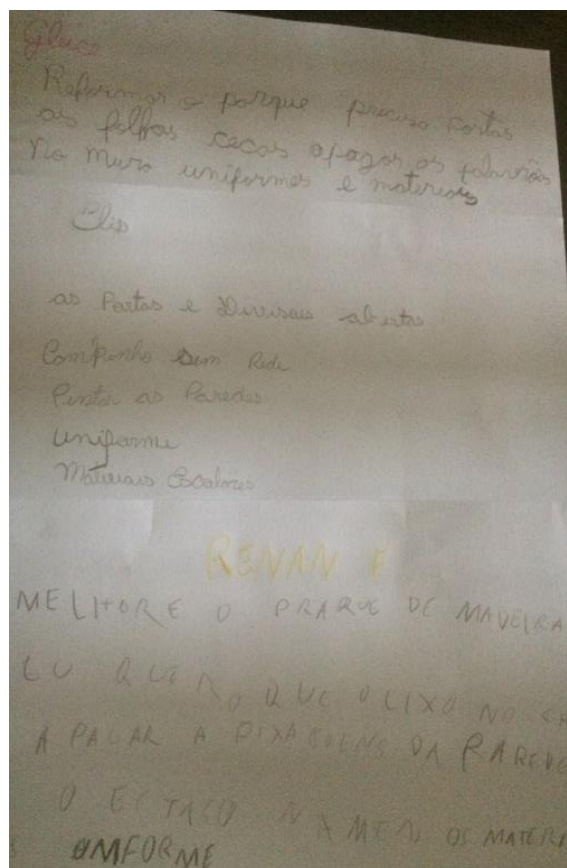 Gleice
Reformar o parque preciso cortas
as folhas cecas apagar os palavrão
No muro uniformes e materiais
Elis
as Portas e Divisais abertas
Campinho sem Rede
Pintar as Paredes
uniforme
Materiais Escolares
RENAN
MELHORE O PRARQUE DE MADEIRA
EU QUERO QUE O LIXO NO
APAGAR A PIXAGUENS DA PAREDE
O OS MATERI
UMFORME